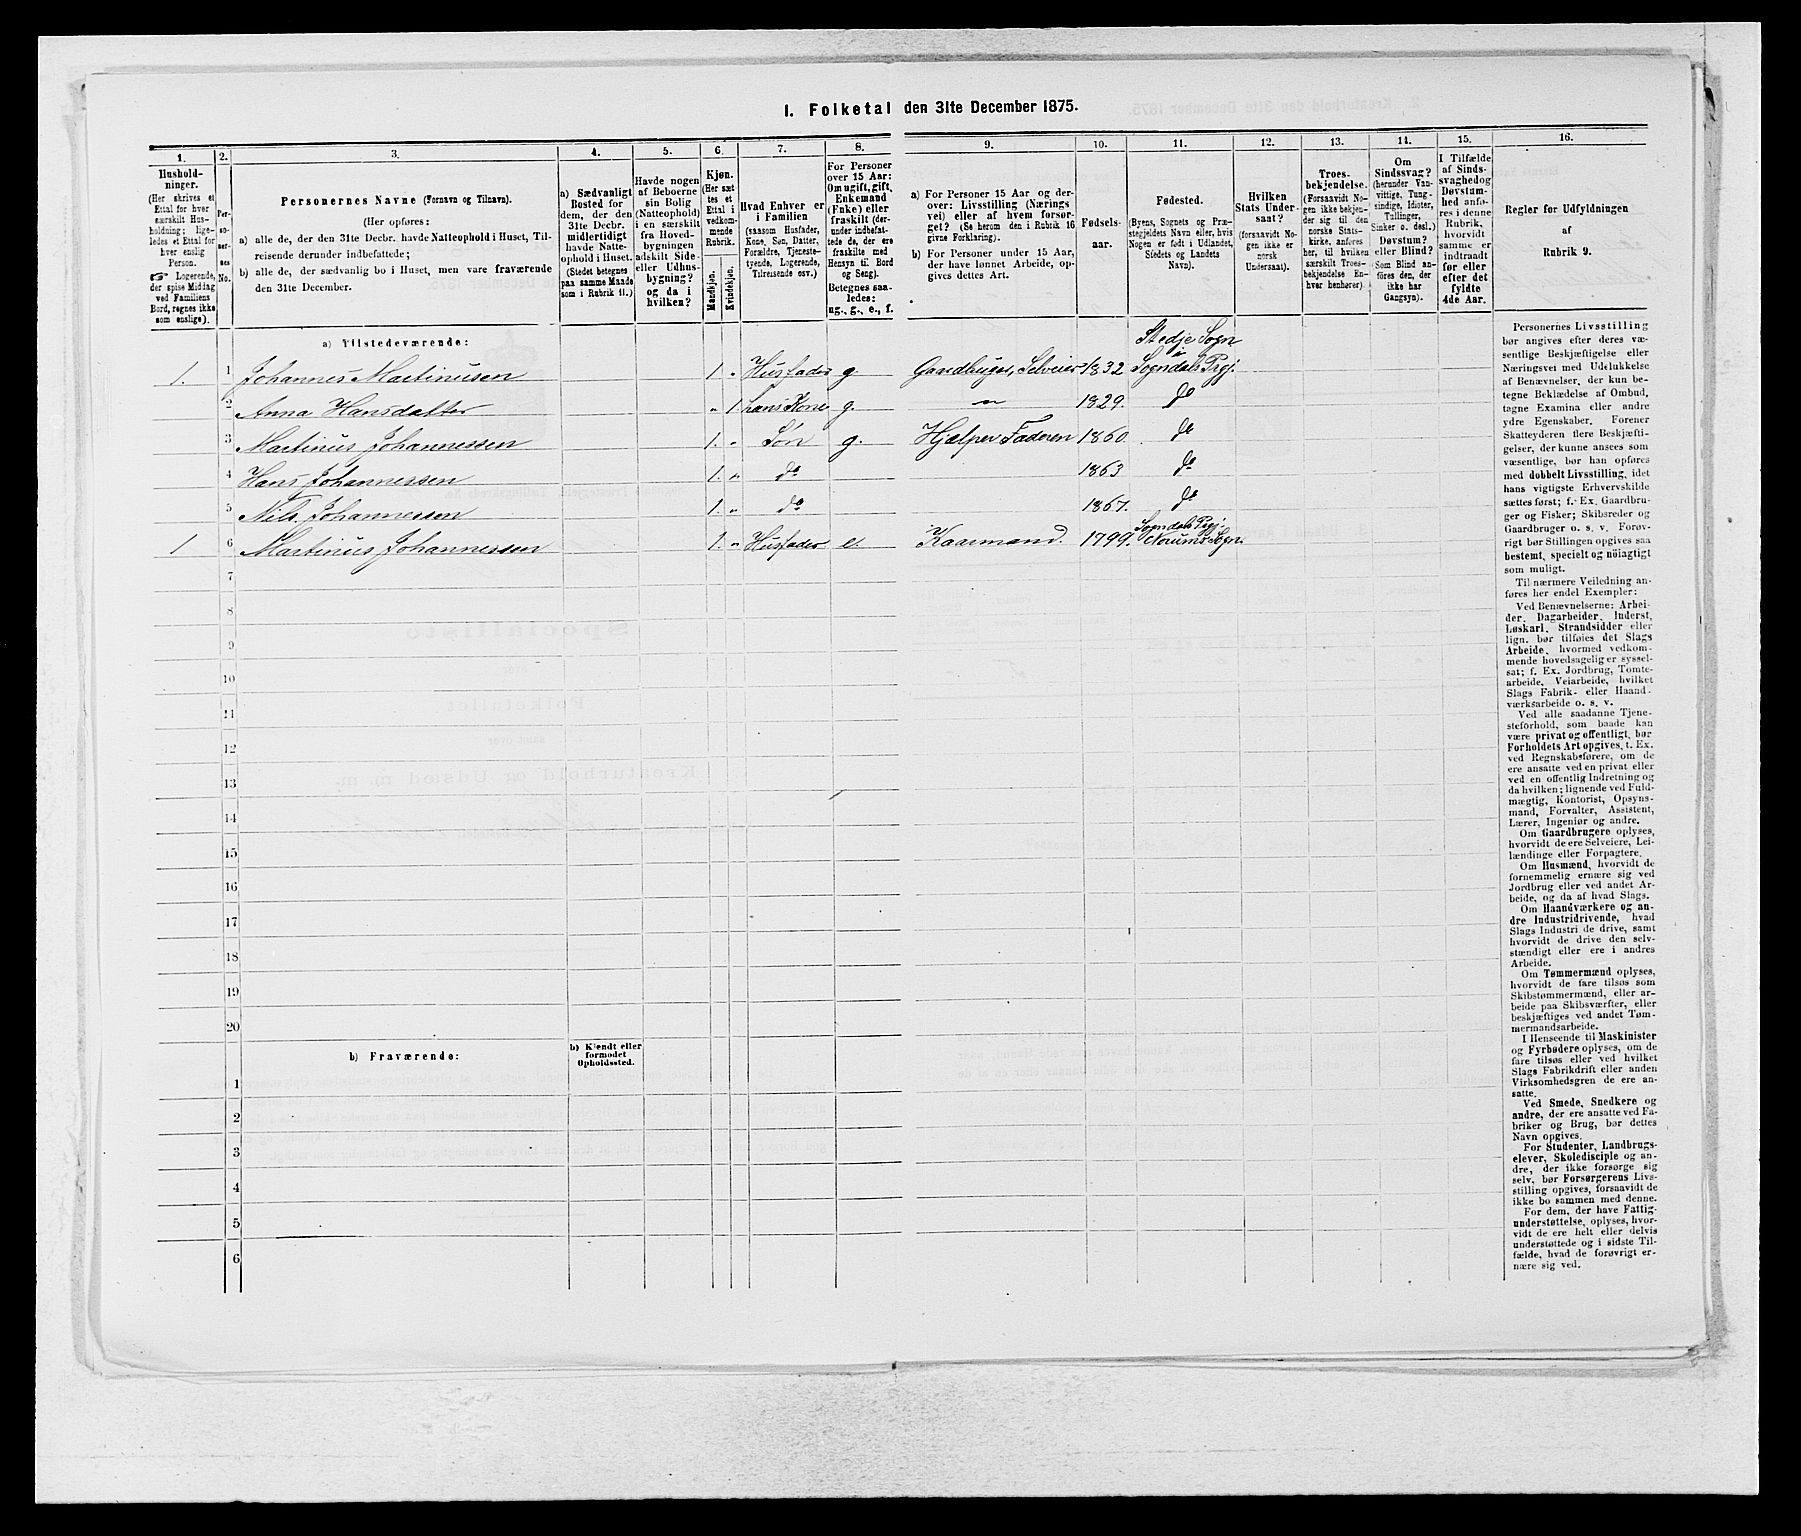 I. Folketal den 31te December 1875.
1.
2.
3.
4.
5.
6.
7.
8.
9.
10.
11.
12.
13.
14.
15.
16.
Husholdninger.
(Her skrives et
Ettal for hver
særskilt Husholdning; ligeledes et Ettal for
hver enslig
Person.
☞ Logerende,
der spise Middag
ved Familiens
Bord, regnes ikke
som enslige).
Personernes No.
Personernes Navne (Fornavn og Tilnavn).
(Her opføres:
a) alle de, der den 31te Decbr. havde Natteophold i Huset, Tilreisende derunder indbefattede;
b) alle de, der sædvanlig bo i Huset, men vare fraværende
den 31te December.
a) Sædvanligt
Bosted for
dem, der den
31te Decbr.
midlertidigt
havde Natteophold i Huset.
(Stedet betegnes
paa samme Maade
som i Rubrik 11.)
Havde nogen
af Beboerne
sin Bolig
(Natteophold)
i en særskilt
fra Hovedbygningen
adskilt Side-
eller Udhusbygning?
og da i
hvilken?
Kjøn.
(Her sættes et
Ettal i
vedkommende
Rubrik.
Mandkjøn.
Kvindekjøn.
Hvad Enhver er
i Familien
(saasom Husfader,
Kone, Søn, Datter,
Forældre, Tjenestetyende, Logerende,
Tilreisende osv.)
For Personer
over 15 Aar:
Om ugift, gift,
Enkemand
(Enke) eller
fraskilt (derunder indbefattede de, der ere
fraskilte med
Hensyn til Bord
og Seng).
Betegnes saaledes:
ug., g., e., f.
a) For Personer 15 Aar og derover: Livsstilling (Næringsvei) eller af hvem forsørget? (Se herom den i Rubrik 16
givne Forklaring).
b) For Personer under 15 Aar,
der have lønnet Arbeide, opgives dettes Art.
Fødselsaar.
Fødested.
(Byens, Sognets og Præstegjeldets Navn eller, hvis
Nogen er født i Udlandet,
Stedets og Landets
Navn).
Hvilken
Stats Undersaat?
(forsaavidt Nogen ikke er
norsk
Undersaat).
Troesbekjendelse.
(Forsaavidt Nogen ikke bekjender sig til den
norske Statskirke, anføres
her, til hvilken
særskilt Troesbekjendelse Enhver henhører).
Om
Sindssvag?
(herunder Vanvittige, Tungsindige, Idioter,
Tullinger,
Sinker o. desl.)
Døvstum?
eller Blind?
(Som Blind anføres den, der
ikke har
Gangsyn).
I Tilfælde
af Sindssvaghed og
Døvstumhed anføres i denne
Rubrik,
hvorvidt
samme er
indtraadt
før eller
efter det
fyldte
4de Aar.
Regler for Udfyldningen
af
Rubrik 9.
a) Tilstedeværende:
1. 1 Johannes Martinusen 1. „ Husfader g. Gaardbruger, Selveier 1832 Stedje Sogn i Sogndals Prgj.
2 Anna Hansdatter „ 1. hans Kone g. „ 1829. do
3 Martinus Johannessen 1. „ Søn g. Hjælper Faderen 1860. do
4 Hans Johannessen 1. „ do 1863 do
5 Nils Johannessen 1. „ do 1867. do
1 6 Martinus Johannessen 1. „ Husfader e. Kaarmand. 1799. Sogndals Prgj. Norums Sogn.
7
8
9
10
11
12
13
14
15
16
17
18
19
20
b) Fraværende:
b) Kjendt eller
formodet
Opholdssted.
1
2
3
4
5
6
Personernes Livsstilling
bør angives efter deres væsentlige Beskjæftigelse eller
Næringsvei med Udelukkelse
af Benævnelser, der kun betegne Beklædelse af Ombud,
tagne Examina eller andre
ydre Egenskaber. Forener
Skatteyderen flere Beskjæftigelser, der kunne ansees som
væsentlige, bør han opføres
med dobbelt Livsstilling, idet
hans vigtigste Erhvervskilde
sættes først; f. Ex. Gaardbruger og Fisker; Skibsreder og
Gaardbruger o. s. v. Forøvrigt bør Stillingen opgives saa
bestemt, specielt og nöiagtigt
som muligt.
Til nærmere Veiledning anføres her endel Exempler:
Ved Benævnelserne: Arbeider, Dagarbeider, Inderst,
Løskarl, Strandsidder eller
lign. bør tilføies det Slags
Arbeide, hvormed vedkommende hovedsagelig er sysselsat; f. Ex. Jordbrug, Tomtearbeide, Veiarbeide, hvilket
Slags Fabrik- eller Haandværksarbeide o. s. v.
Ved alle saadanne Tjenesteforhold, som baade kan
være privat og offentligt, bør
Forholdets Art opgives, t. Ex.
ved Regnskabsførere, om de
ere ansatte ved en privat eller
ved en offentlig Indretning og
da hvilken; lignende ved Fuldmægtig, Kontorist, Opsynsmand, Forvalter, Assistent,
Lærer, Ingeniør og andre.
Om Gaardbrugere oplyses,
hvorvidt de ere Selveiere, Leilændinge eller Forpagtere.
Om Husmænd, hvorvidt de
fornemmelig ernære sig ved
Jordbrug eller ved andet Arbeide, og da af hvad Slags.
Om Haandværkere og andre Industridrivende, hvad
Slags Industri de drive, samt
hvorvidt de drive den selvstændigt eller ere i andres
Arbeide.
Om Tømmermænd oplyses,
hvorvidt de fare tilsøs som
Skibstømmermænd, eller arbeide paa Skibsværfter, eller
beskjæftiges ved andet Tømmermandsarbeide.
I Henseende til Maskinister
og Fyrbødere oplyses, om de
fare tilsøs eller ved hvilket
Slags Fabrikdrift eller anden
Virksomhedsgren de ere ansatte.
Ved Smede, Snedkere og
andre, der ere ansatte ved Fabriker og Brug, bør dettes
Navn opgives.
For Studenter, Landbrugselever, Skoledisciple og andre, der ikke forsørge sig
selv, bør Forsørgerens Livsstilling opgives, forsaavidt de
ikke bo sammen med denne.
For dem, der have Fattigunderstøttelse, oplyses, hvorvidt de ere helt eller delvis
understøttede og i sidste Tilfælde, hvad de forøvrigt ernære sig ved.